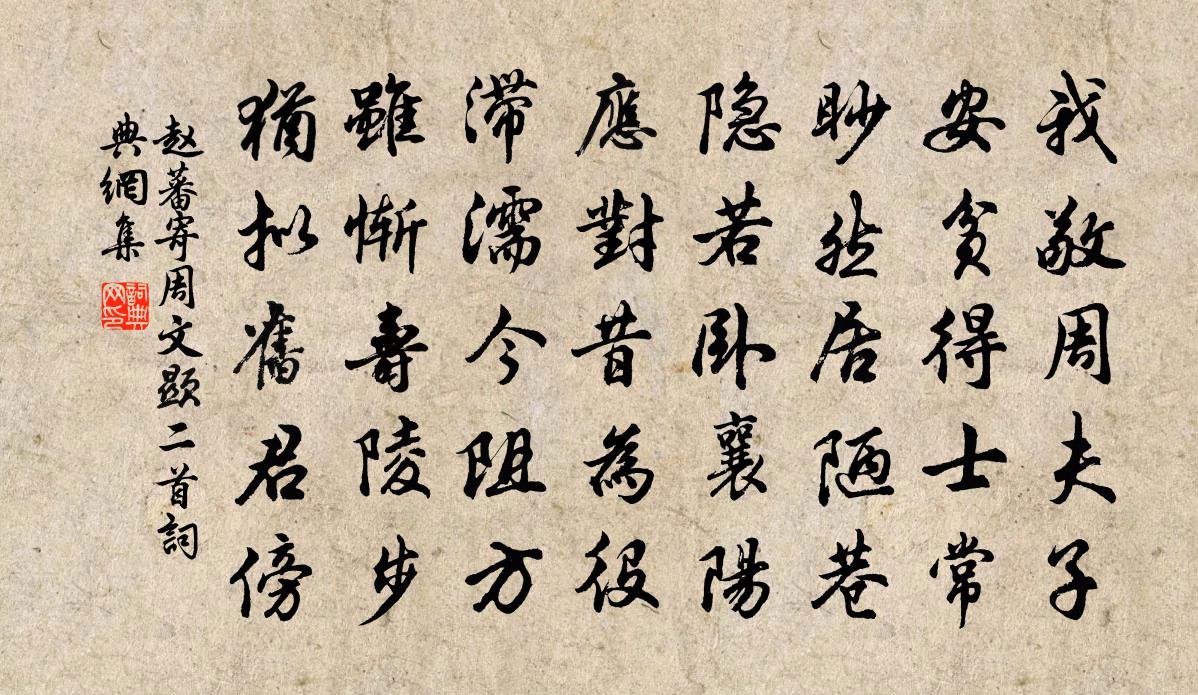 我敬周夫子
安貧得士常
眇然居陋巷
隐若卧襄陽
應對昔為役
滞濡今阻方
雖慚壽陵步
猶拟舊君傍
赵蕃寄周文顯二首詞
典網集
詞典
网印